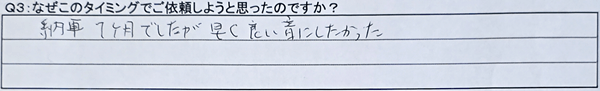 Q3:なぜこのタイミングでご依頼しようと思ったのですか？
納車 1ヶ月でしたが 早く良い音にしたかった